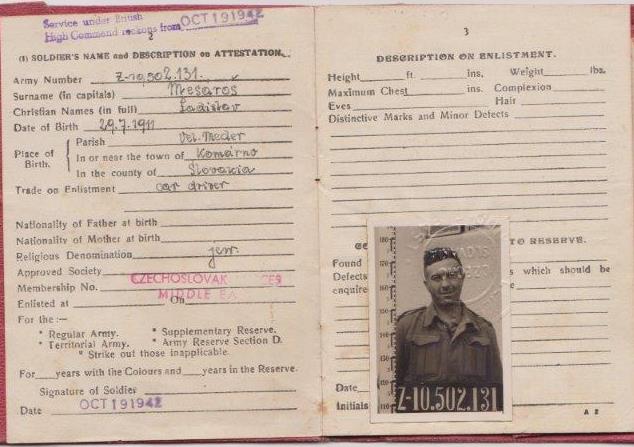 Service under British
High Command reckons from OCT 19 1942
2
(1) SOLDIER'S NAME and DESCRIPTION on ATTESTATION.
Army Number Z-10,502.131.
Surname (in capitals) Mesaros
Christian Names (in full) Ladislav
Date of Birth 29.7.1911
Place of Birth. Parish Vel. Meder
In or near the town of Komárno
In the county of Slovakia
Trade on Enlistment car driver
Nationality of Father at birth
Nationality of Mother at birth
Religious Denomination jew.
Approved Society
Membership No. CZECHOSLOVAK
MIDDLE
Enlisted at On
For the :—
* Regular Army. * Supplementary Reserve.
* Territorial Army. * Army Reserve Section D.
* Strike out those inapplicable.
For years with the Colours and years in the Reserve.
Signature of Soldier
Date OCT 19 1942
3
DESCRIPTION ON ENLISTMENT.
Height ft. ins. Weight lbs.
Maximum Chest ins. Complexion
Eyes Hair
Distinctive Marks and Minor Defects
TO RESERVE.
Found
Defects which should be
enquire
Date
Initials
A 2
180
170
160
Z-10.502.131